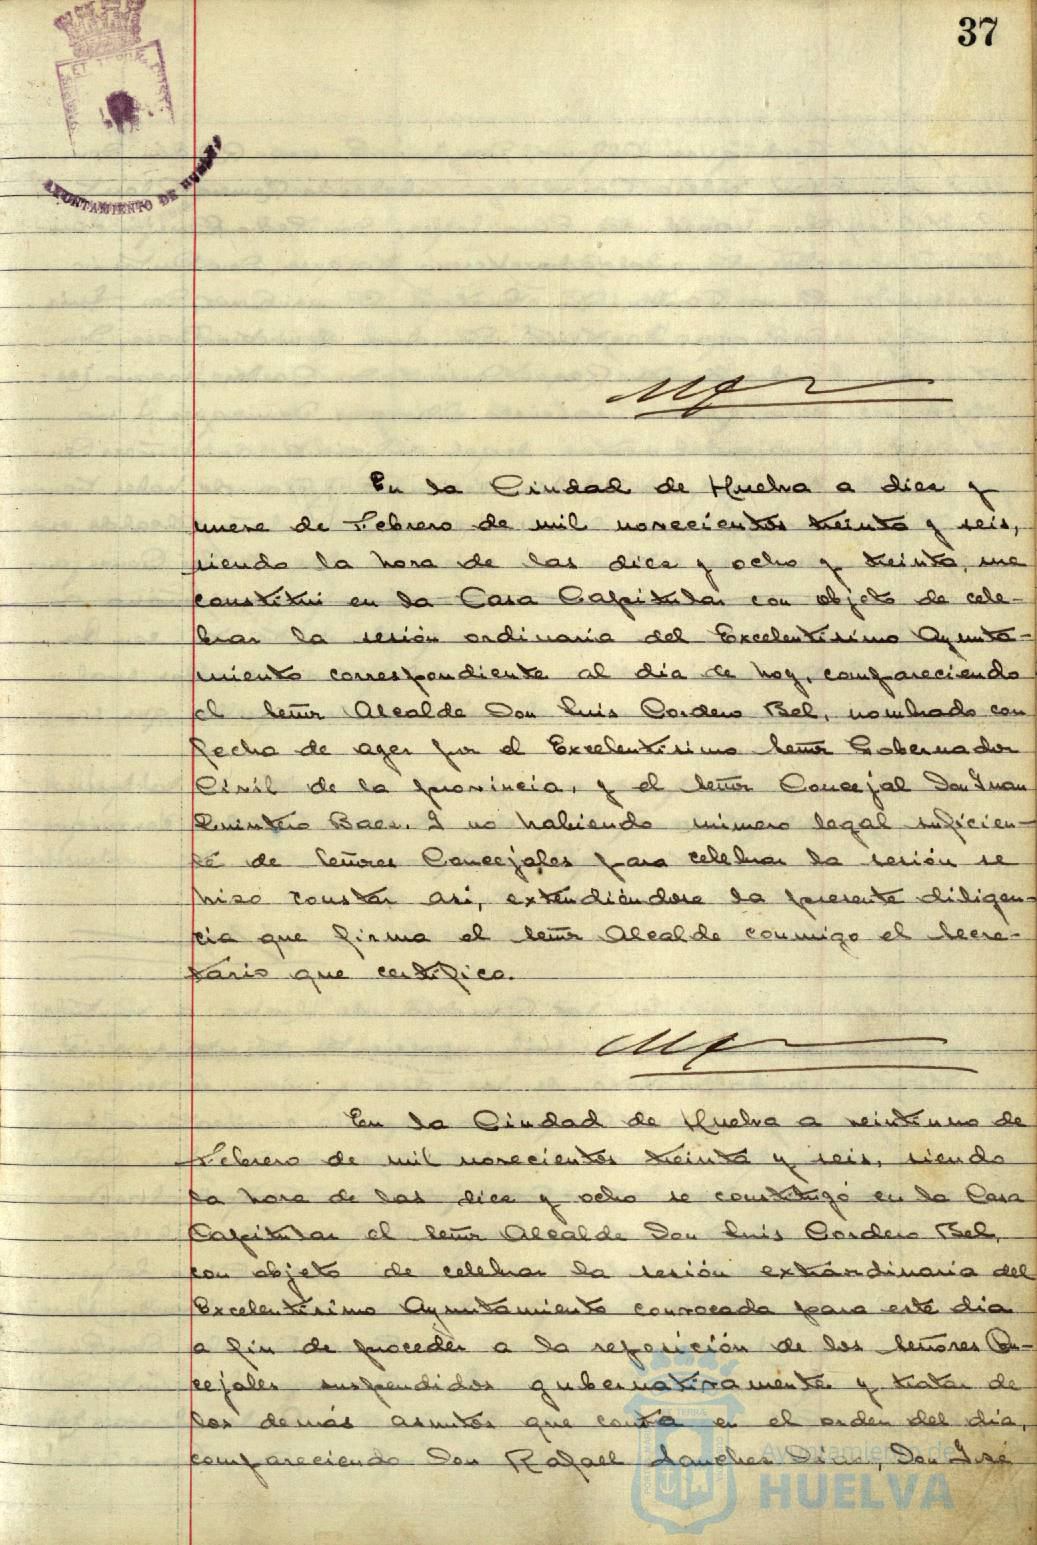 37
AYUNTAMIENTO DE HUELVA
En la Ciudad de Huelva a diez y
nueve de Febrero de mil novecientos treinta y seis,
siendo la hora de las diez y ocho y treinta, me
constituí en la Casa Capitular con objeto de cele-
brar la sesión ordinaria del Excelentísimo Ayunta-
miento correspondiente al día de hoy, compareciendo
el Señor Alcalde Don Luis Cordero Bel, nombrado con
fecha de ayer por el Excelentísimo Señor Gobernador
Civil de la provincia, y el Señor Concejal Don Juan
Quintero Baez. Y no habiendo número legal suficien-
te de Señores Concejales para celebrar la sesión se
hizo constar así, extendiéndose la presente diligen-
cia que firma el Señor Alcalde conmigo el Secre-
tario que certifico.
En la Ciudad de Huelva a veintiuno de
Febrero de mil novecientos treinta y seis, siendo
la hora de las diez y ocho se constituyó en la Casa
Capitular el Señor Alcalde Don Luis Cordero Bel,
con objeto de celebrar la sesión extraordinaria del
Excelentísimo Ayuntamiento convocada para este día
a fin de proceder a la reposición de los Señores Con-
cejales suspendidos gubernativamente y tratar de
los demás asuntos que consta en el orden del día,
compareciendo Don Rafael Sanchez Díaz, Don José
Ayuntamiento de
HUELVA